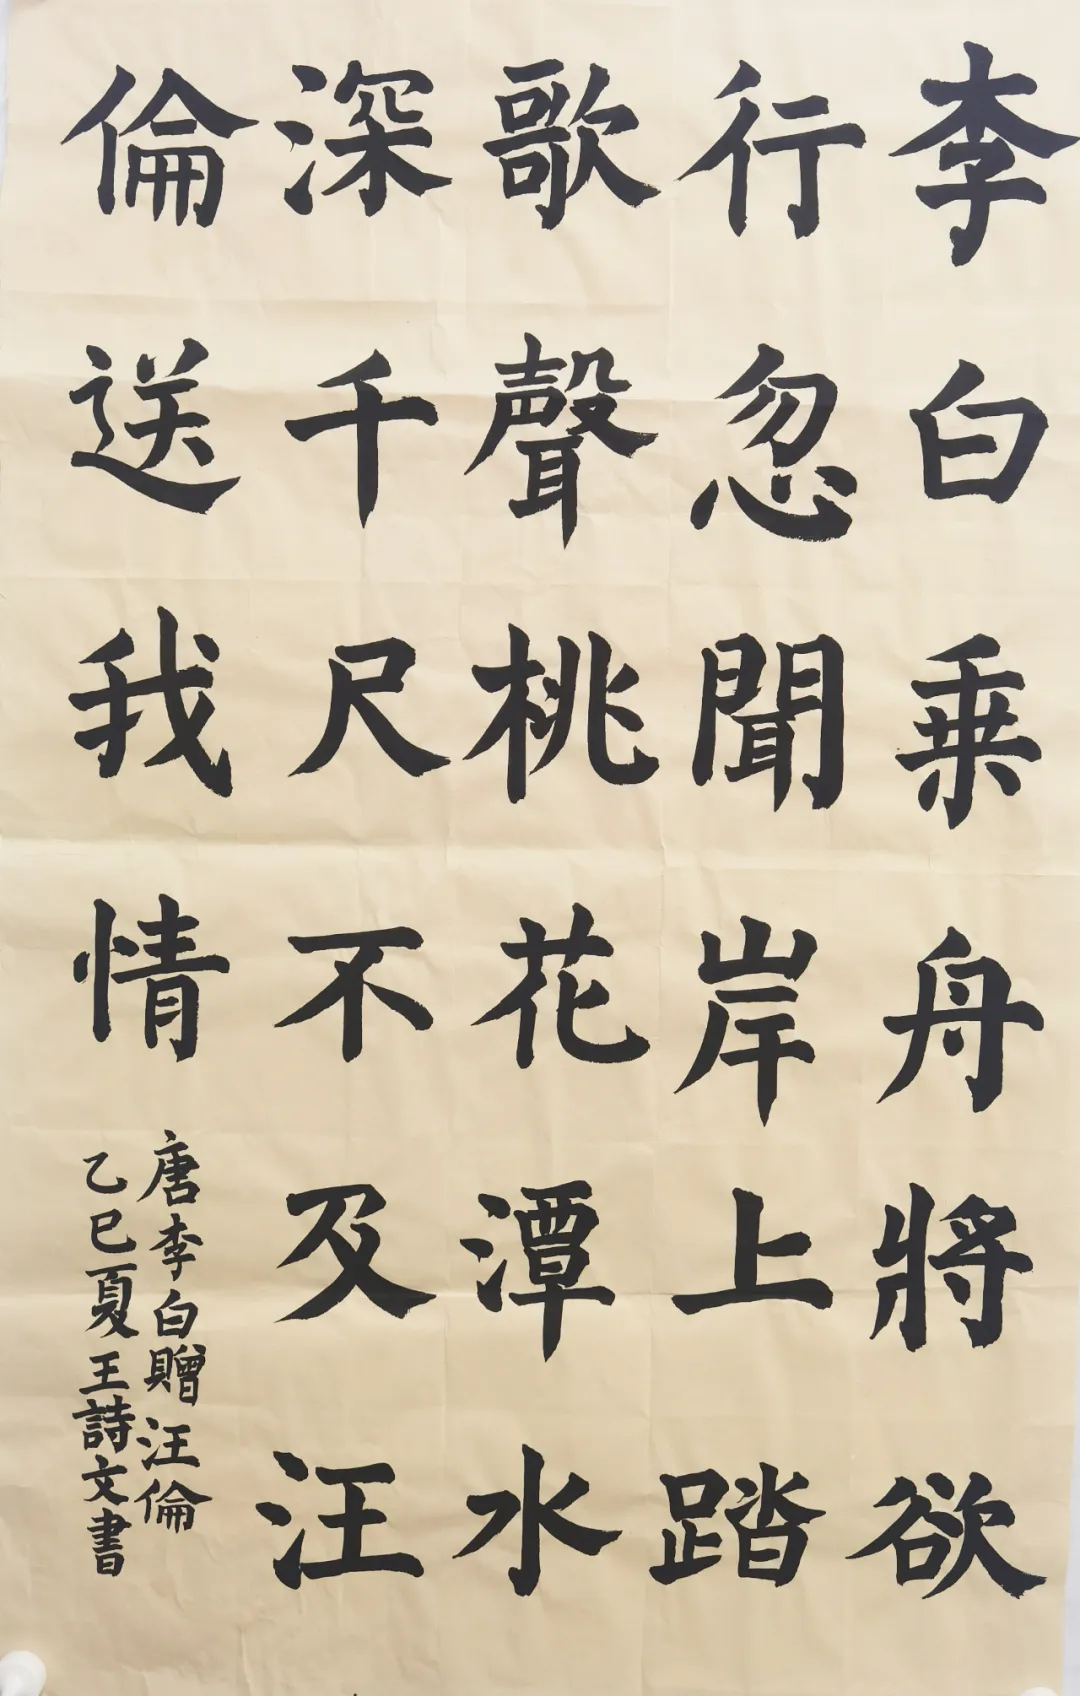 李白乘舟將欲
行忽聞岸上踏
歌聲桃花潭水
深千尺不及汪
倫送我情
唐李白贈汪倫
乙巳夏王詩文書